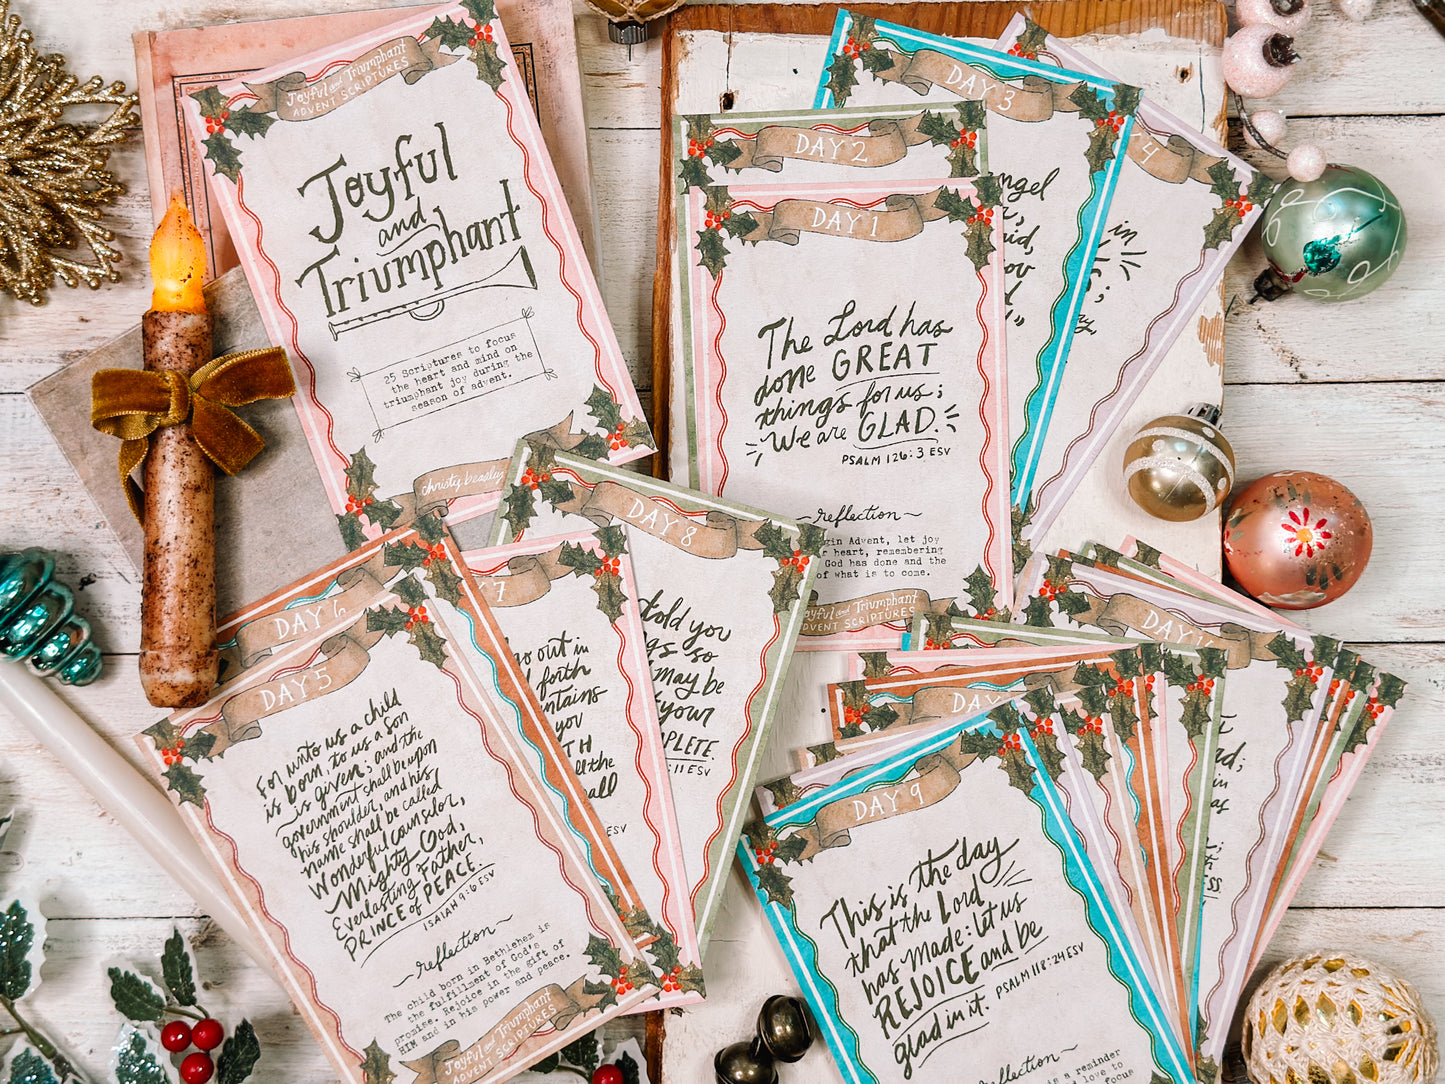 Joyful and Triumphant
ADVENT SCRIPTURES
Joyful
and
Triumphant
25 Scriptures to focus
the heart and mind on
triumphant joy during the
season of advent.
christy beasley
DAY 3
4
DAY 2
in
DAY 1
The Lord has
done GREAT
things for us;
We are GLAD.
PSALM 126:3 ESV
reflection
let joy
heart, remembering
God has done and the
of what is to come.
Joyful and Triumphant
ADVENT SCRIPTURES
DAY 8
told you
so
may be
ESV
7
out in
forth
you
the
ESV
DAY 6
DAY 5
For unto us a child
is born, to us a son
is given; and the
government shall be upon
his shoulder, and his
name shall be called
Wonderful Counselor,
Mighty God,
Everlasting Father,
PRINCE of PEACE.
ISAIAH 9:6 ESV
reflection
The child born in Bethlehem is
the fulfillment of God's
promise. Rejoice in the gift of
HIM and in his power and peace.
Joyful and Triumphant
ADVENT SCRIPTURES
DAY
DAY
in
as
DAY 9
This is the day
that the Lord
has made: let us
REJOICE and be
glad in it.
PSALM 118:24 ESV
reflection
is a reminder
love to
focus